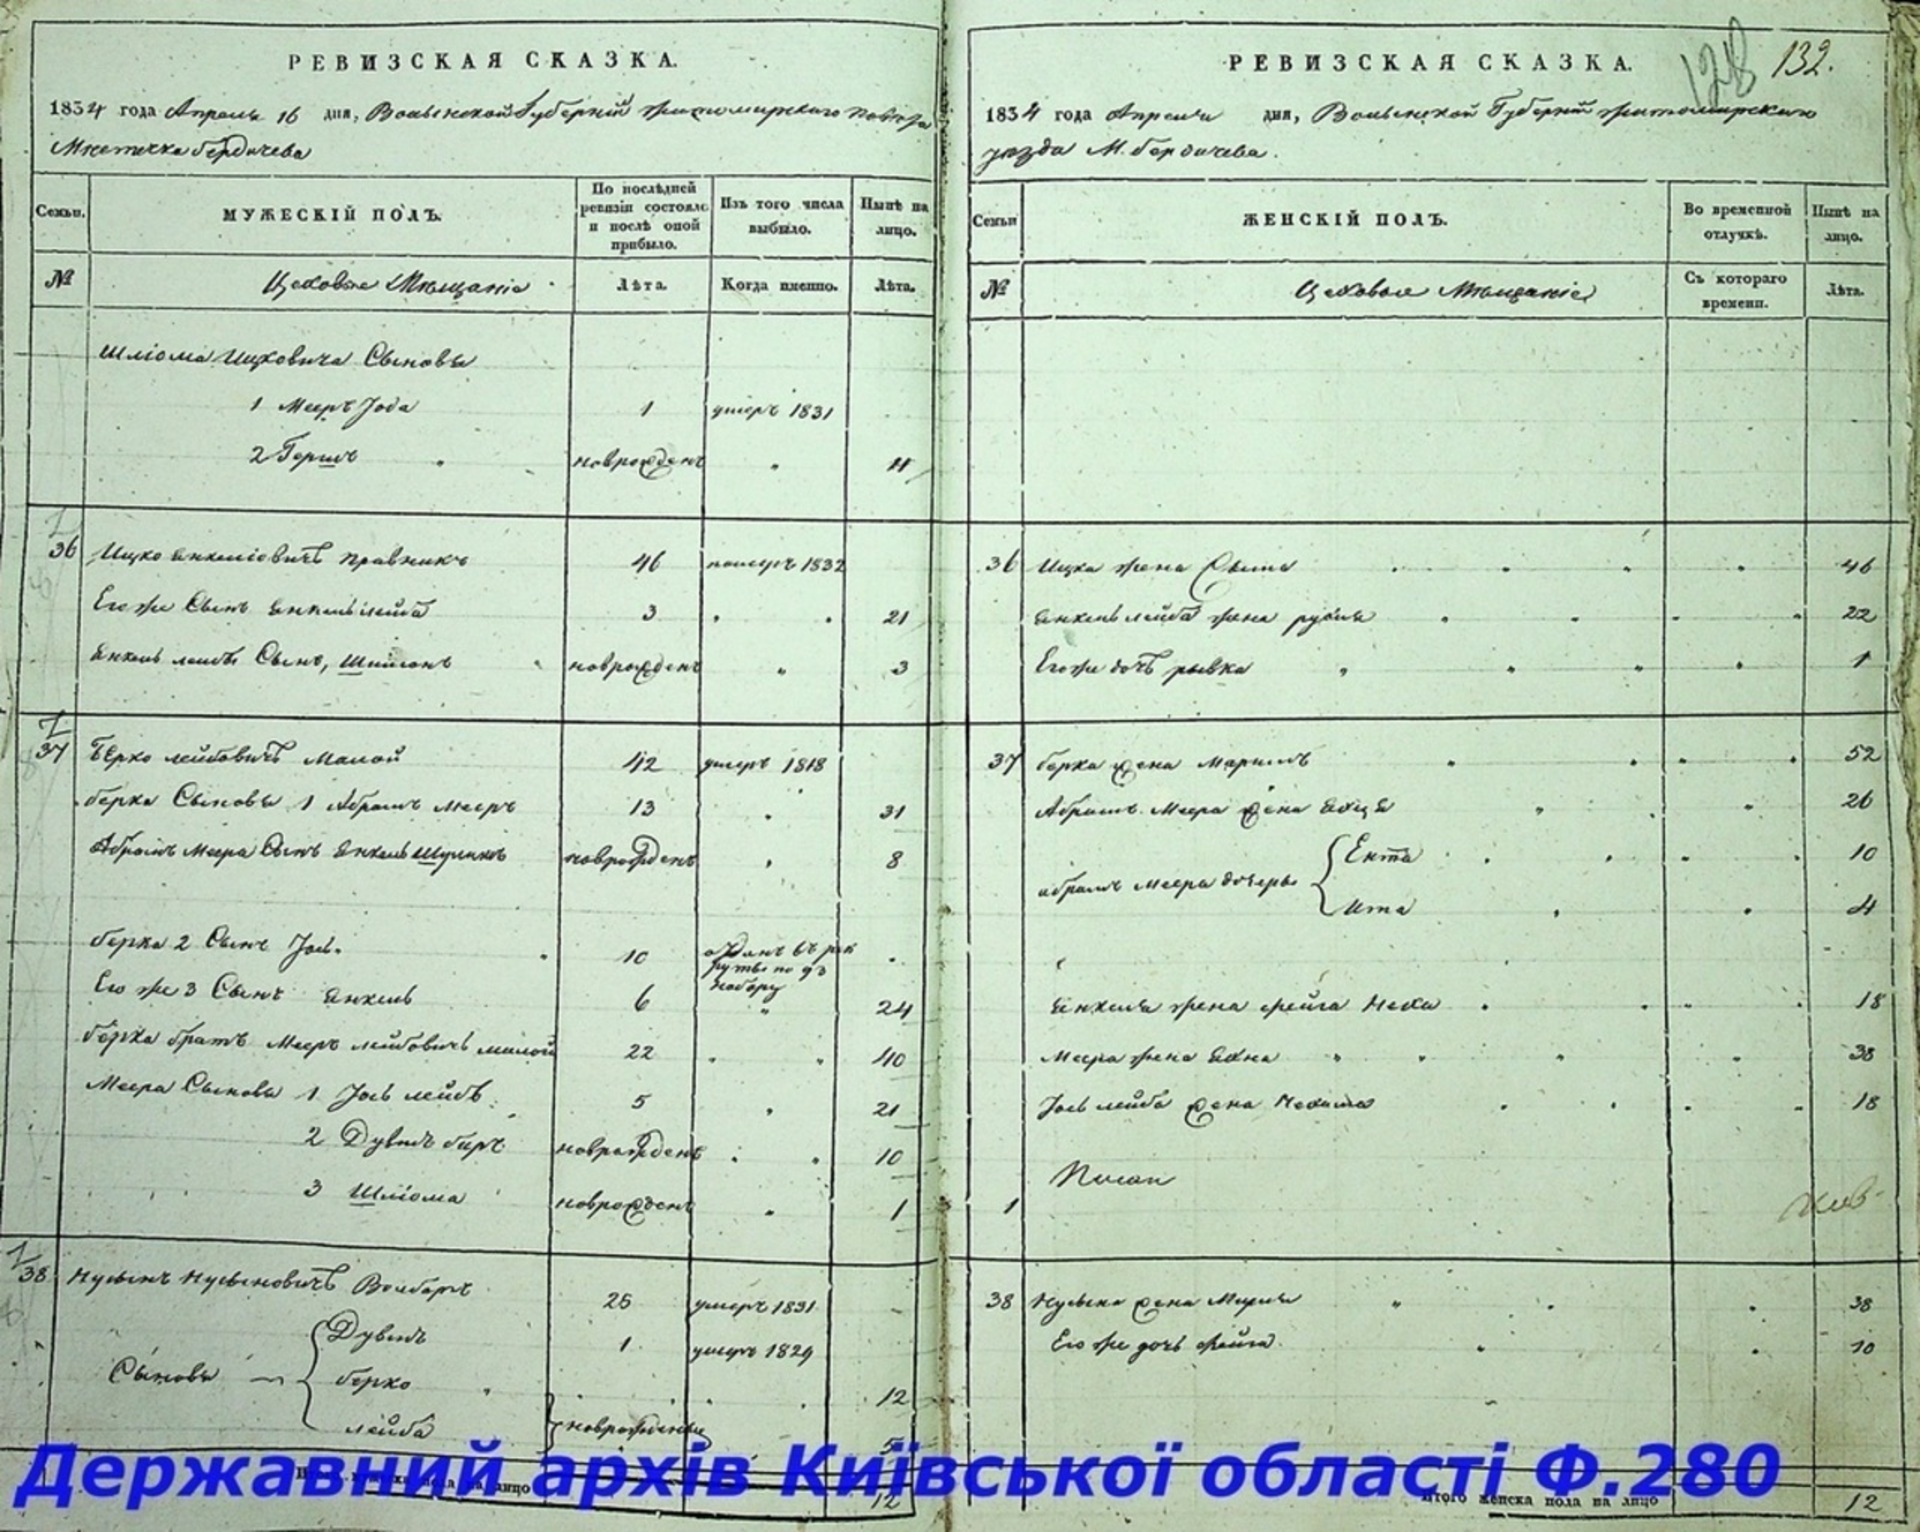 РЕВИЗСКАЯ СКАЗКА.
1834 года Апреля 16 дня, Волынской Губерніи Житомирскаго повета
Местечка Бердичева
Семьи.
МУЖЕСКІЙ ПОЛЪ.
По послѣдней ревизіи состояло и послѣ оной прибыло.
Изъ того числа выбыло.
Нынѣ на лицо.
№
Цеховые Мещаніе
Лѣта.
Когда именно.
Лѣта.
Шліома Ицковича Сыновья
1 Мееръ Іода 1 умеръ 1831
2 Гершъ новорожденъ 11
36 Ицко Енкеліовичъ Правникъ 46 померъ 1832
Его же Сынъ Енкель лейба 3 21
Енкель лейбы Сынъ, Шимонъ новорожденъ 3
37 Берко лейбовичъ Малой 42 умеръ 1818
Берка Сыновья 1 Абрамъ Мееръ 13 31
Абрамъ Меера Сынъ Енкель новорожденъ 8
Берка 2 Сынъ Іось 10 отданъ въ рекруты по 93 набору
Его же 3 Сынъ Енкель 6 24
Берка братъ Мееръ лейбовичъ малой 22 40
Меера Сыновья 1 Іось лейбъ 5 21
2 Дувидъ беръ новорожденъ 10
3 Шліома новорожденъ 1
38 Нусынъ Нусыновичъ 25 умеръ 1831
Дувидъ 1 умеръ 1829
Сыновья Берко 12
лейба новорожденые 5
мужеска пола на лицо 12
РЕВИЗСКАЯ СКАЗКА.
128 132.
1834 года Апреля дня, Волынской Губерніи Житомирскаго
уезда М. Бердичева.
Семьи
ЖЕНСКІЙ ПОЛЪ.
Во временной отлучкѣ.
Нынѣ на лицо.
№
Цеховые Мещаніе
Съ котораго времени.
Лѣта.
36 Ицка жена Сыма 46
Енкель лейба жена рухля 22
Его же дочъ рывка 1
37 Берка жена Маріямъ 52
Абрамъ Меера жена 26
Ента 10
Абрамъ Меера дочеры
Ита 4
Енкеля жена фейга Неха 18
Меера жена Хана 38
Іось лейба жена Нехама 18
1
38 Нусына жена Марья 38
Его же дочъ фейга 10
Итого женска пола на лицо 12
Державний архів Київської області Ф.280